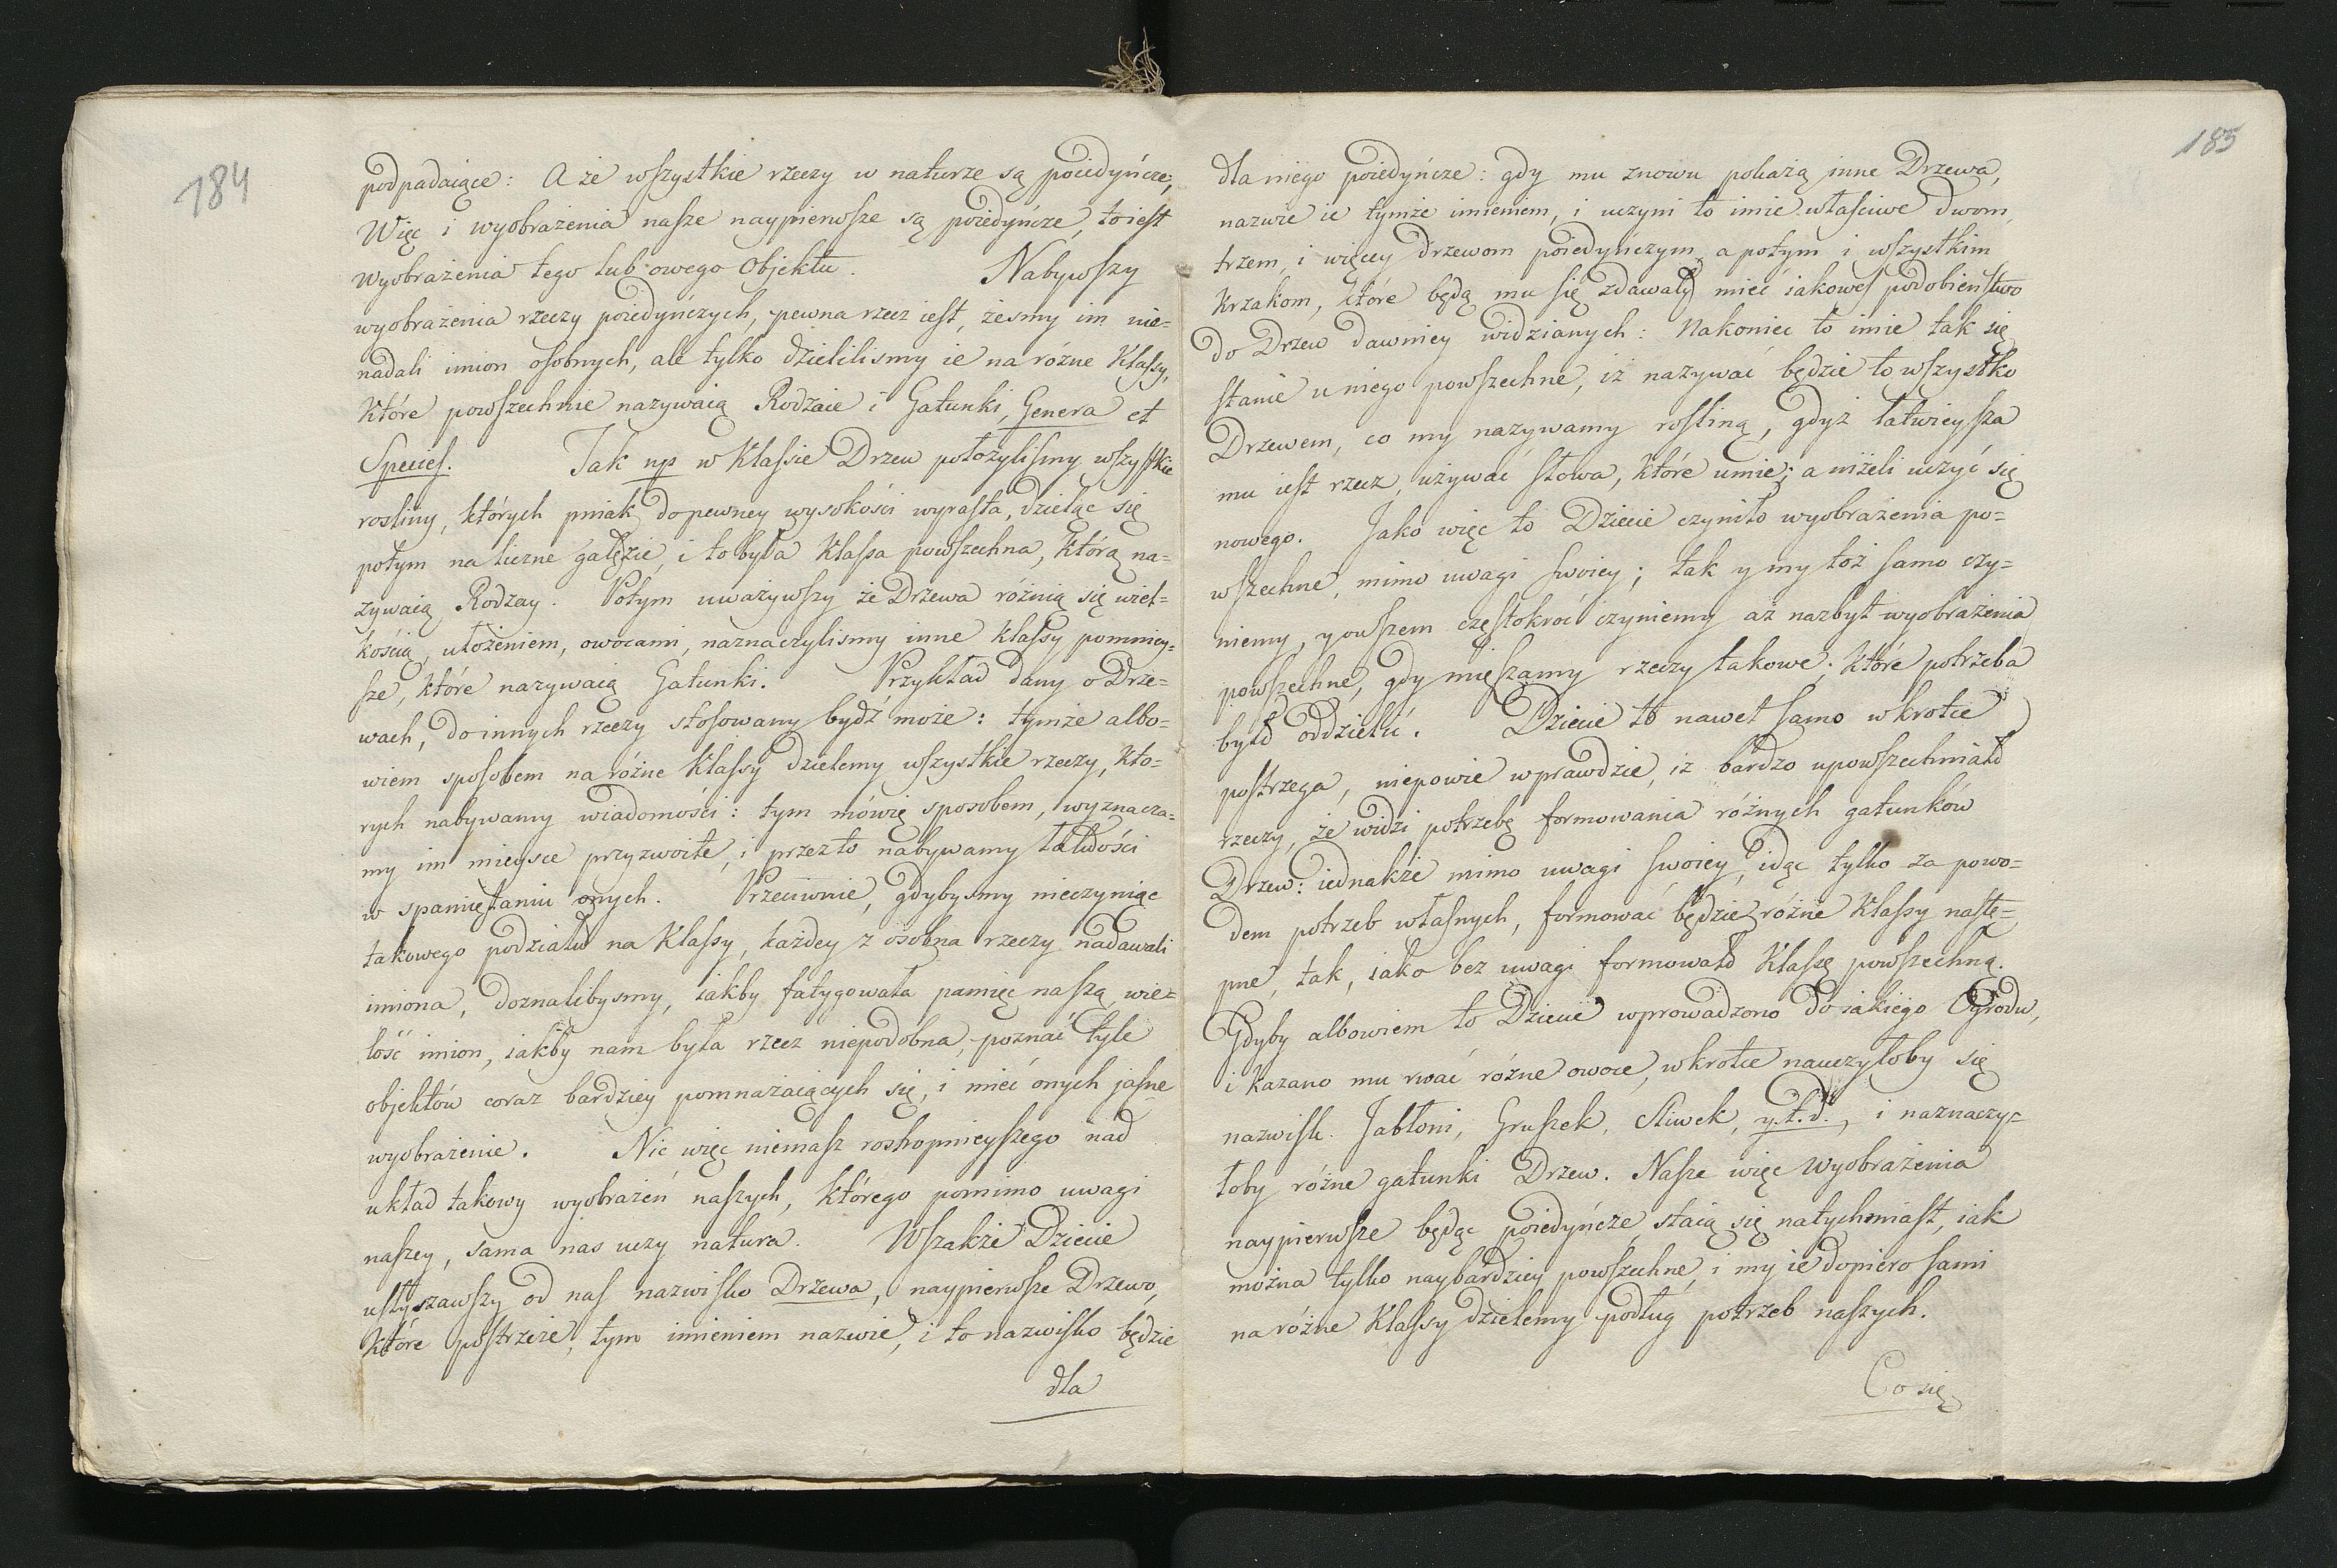 184
podpadaiące: A że wszystkie rzeczy w naturze są poiedyńcze;
Więc i wyobrażenia nasze naypierwsze są poiedyńcze, to iest
wyobrażenia tego lub owego Objektu. Nabywszy
wyobrażenia rzeczy poiedyńczych, pewna rzecz iest, żesmy im nie=
nadali imion osobnych, ale tylko dzielilismy ie na różne Klassy,
Które powszechnie nazywaią Rodzaie i Gatunki, Genera et
Species. Tak np w Klassie Drzew położylismy wszystkie
rosliny, których pniak do pewney wysokości wyrasta, dzieląc się
potym na liczne gałęzie, i to była Klassa powszechna, którą na=
zywaią Rodzay. Potym uważywszy że Drzewa różnią się wiel=
kością, ułożeniem, owocami, naznaczylismy inne Klassy pomniey=
sze, które nazywaią Gatunki. Przykład dany o Drze=
wach, do innych rzeczy stosowany bydź może: tymże albo=
wiem sposobem na różne Klassy dzielemy wszystkie rzeczy, kto=
rych nabywamy wiadomości: tym mówię sposobem, wyznacza=
my im mieysce przyzwoite, i przezto nabywamy łatwości
w spamiętaniu onych. Przeciwnie, gdybysmy nieczyniąc
takowego podziału na Klassy, każdey z osobna rzeczy nadawali
imiona, doznalibysmy, iakby fatygowała pamięć naszą wie=
lość imion, iakby nam była rzecz niepodobna, poznać tyle
objektów coraz bardziey pomnażaiących się, i mieć onych jasne
wyobrażenie. Nic więc niemasz roskropnieyszego nad
układ takowy wyobrażeń naszych, którego pomimo uwagi
naszey, sama nas uczy natura. Wszakże Dziecie
usłyszawszy od nas nazwisko Drzewa, naypierwsze Drzewo,
Które postrzeże, tym imieniem nazwie, i to nazwisko będzie
dla
185
dla niego poiedyńcze: gdy mu znowu pokażą inne Drzewa,
nazwie ie tymże imieniem, i uczyni to imie właściwe dwom,
trzem, i więcey drzewom poiedyńczym, a potym i wszystkim
Krzakom, które będą mu się zdawały mieć iakowes podobieństwo
do Drzew dawniey widzianych: Nakoniec to imie tak się
stanie u niego powszechne, iż nazywać będzie to wszystko
Drzewem, co my nazywamy rosliną, gdyż łatwieysza
mu iest rzecz, używać słowa, które umie; aniżeli uczyć się
nowego. Jako więc to Dziecie czyniło wyobrażenia po=
wszechne, mimo uwagi swoiey; tak y my toż samo czy=
niemy, y owszem częstokroć czyniemy aż nazbyt wyobrażenia
powszechne, gdy mięszamy rzeczy takowe, które potrzeba
było oddzielić. Dziecie to nawet samo wkrotce
postrzega, niepowie wprawdzie, iż bardzo upowszechniało
rzeczy, że widzi potrzebę formowania różnych gatunków
Drzew: iednakże mimo uwagi swoiey, idąc tylko za powo=
dem potrzeb własnych, formować będzie różne Klassy nastę=
pne, tak, iako bez uwagi formowało Klassę powszechną.
Gdyby albowiem to Dziecie wprowadzono do iakiego Ogrodu,
i kazano mu rwać różne owoce, wkrotce nauczyłoby się
nazwisk Jabłoni, Gruszek, Sliwek, y.t.d., i naznaczy=
łoby różne gatunki Drzew. Nasze więc wyobrażenia
naypierwsze będąc poiedyńcze, staią się natychmiast, iak
można tylko naybardziey powszechne, i my ie dopiero sami
na różne Klassy dzielemy podług potrzeb naszych.
Co się